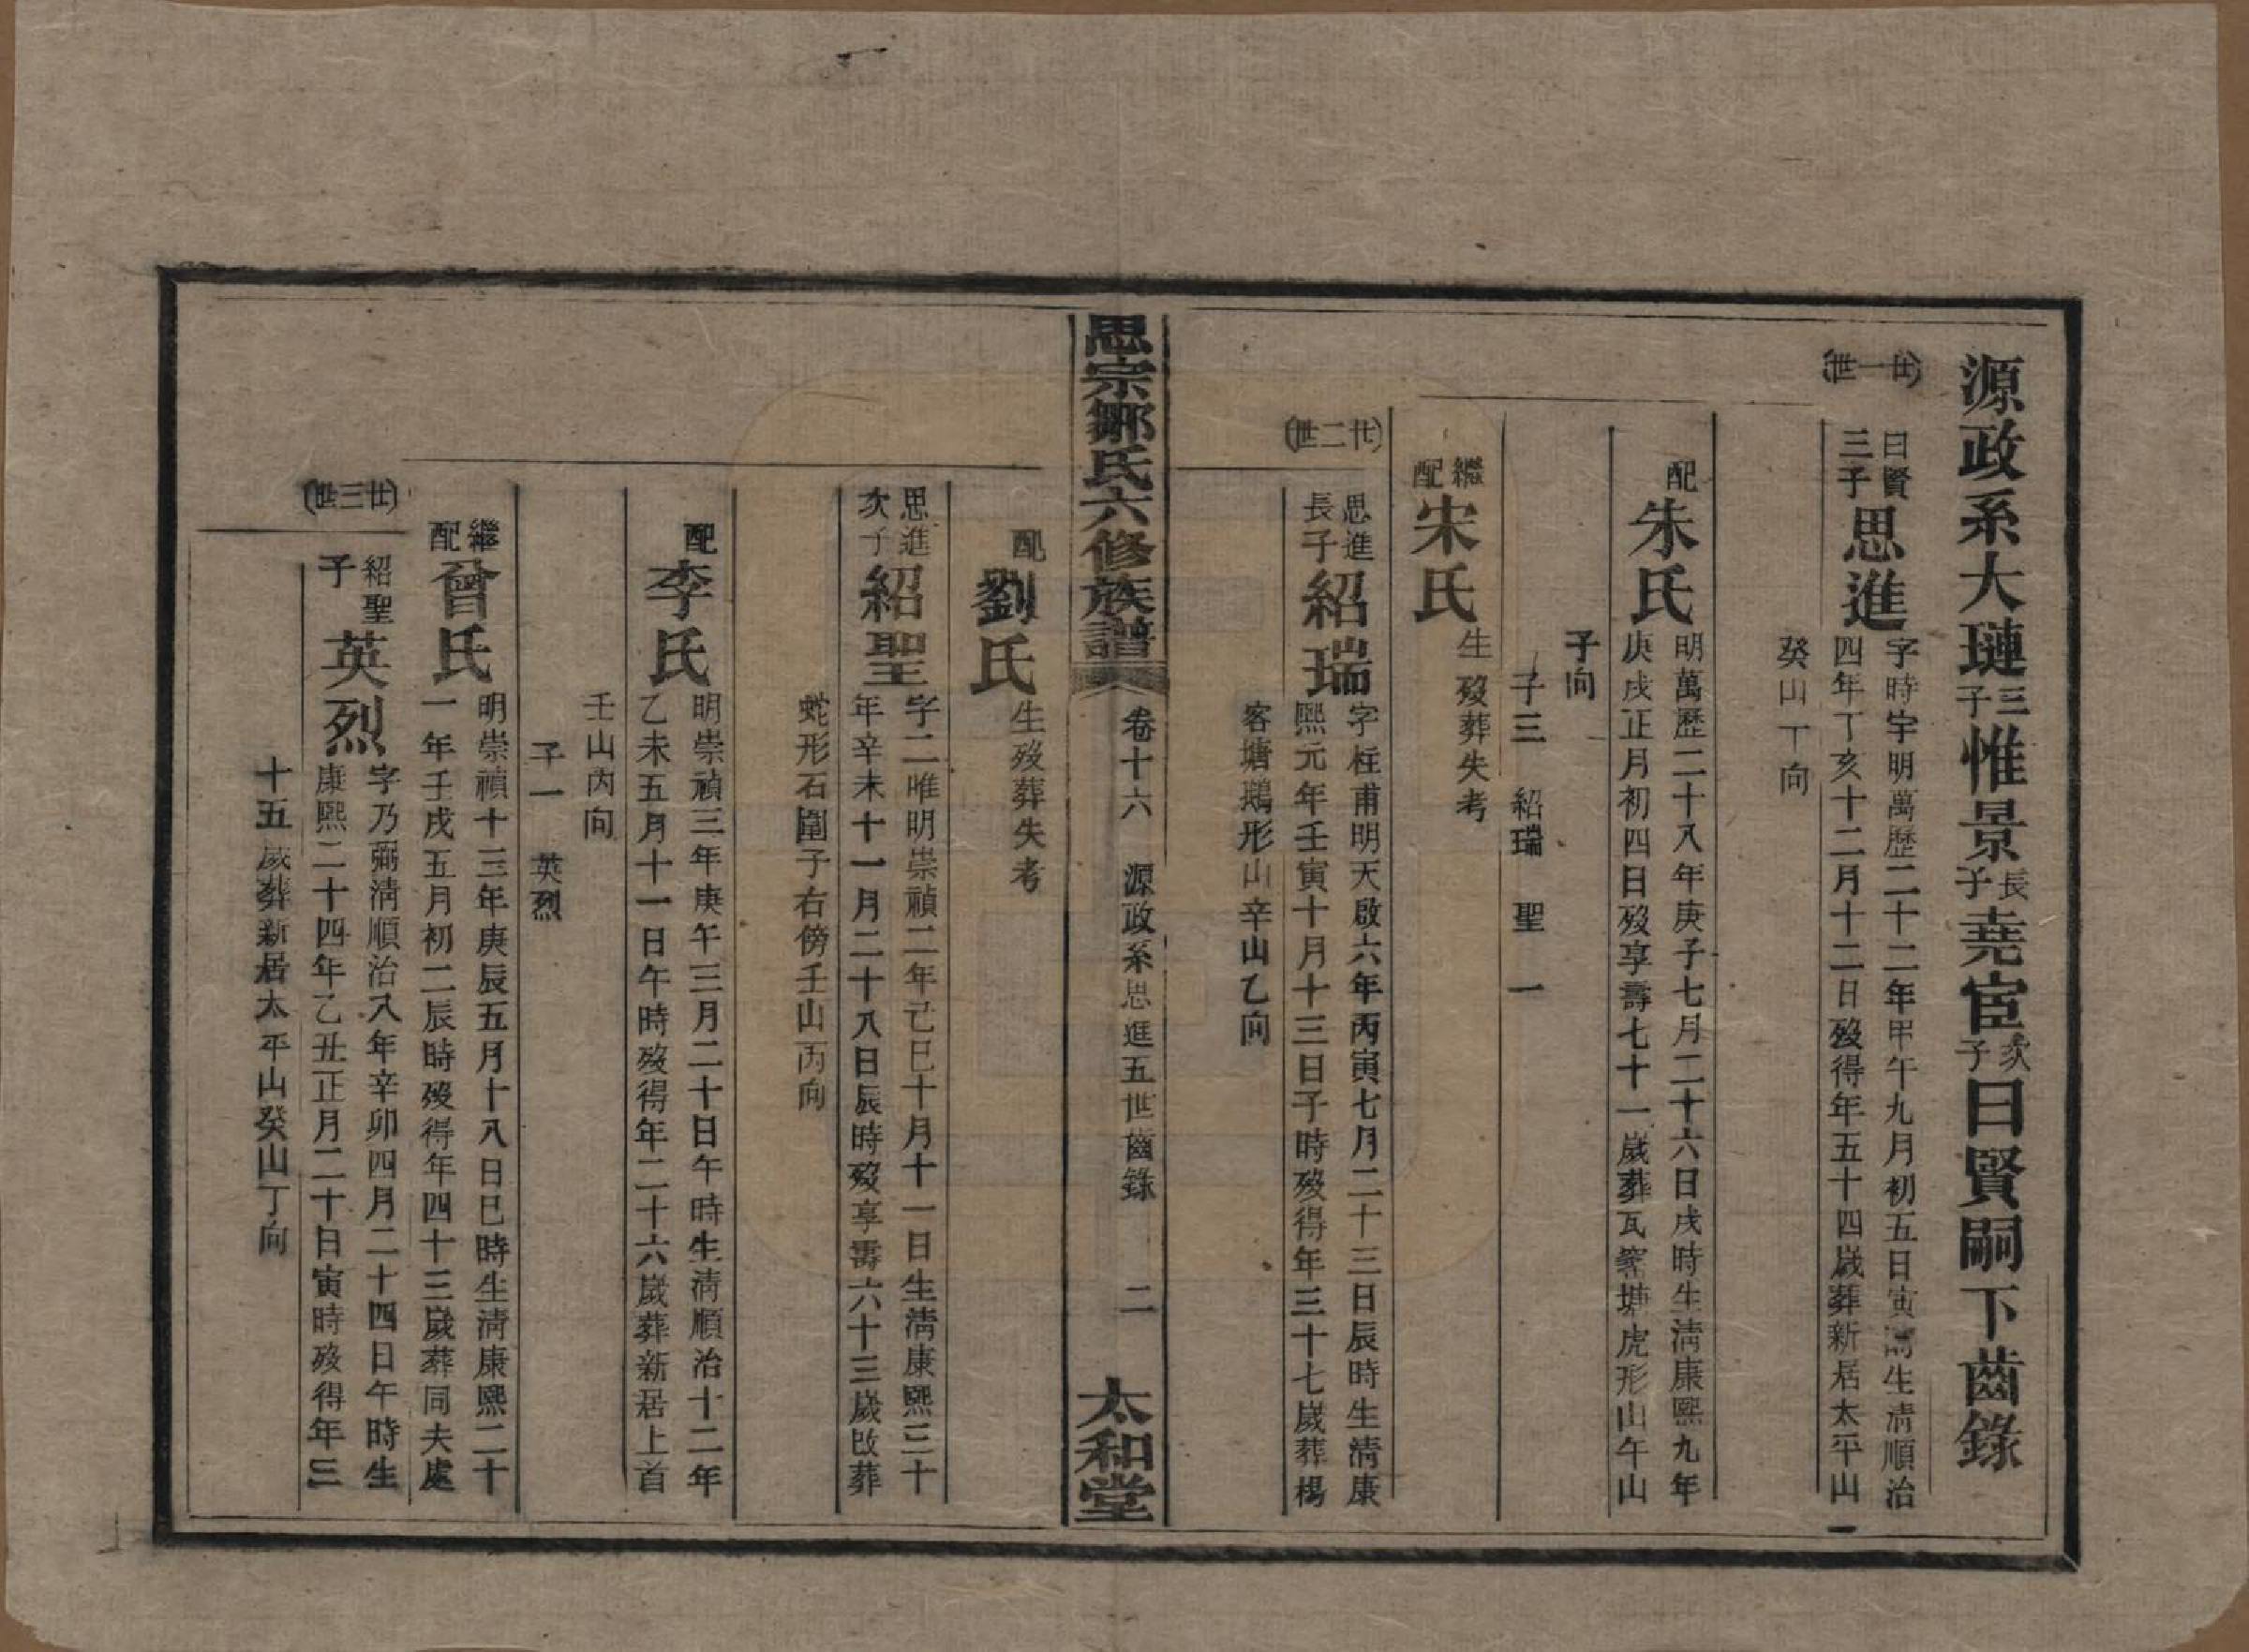 源政系大璉三子惟景長子堯宦次子曰賢嗣下齒錄
(廿一世)
曰賢三子思進
字時宇明萬歷二十二年甲午九月初五日寅時生清順治
四年丁亥十二月十二日歿得年五十四歲葬新居太平山
癸山丁向
配朱氏
明萬歷二十八年庚子七月二十六日戌時生清康熙九年
庚戌正月初四日歿享壽七十一歲葬瓦窰塘虎形山午山
子向
子三 紹瑞 聖 一
繼配宋氏
生歿葬失考
(廿二世)
思進長子紹瑞
字柱甫明天啟六年丙寅七月二十三日辰時生清康
熙元年壬寅十月十三日子時歿得年三十七歲葬楊
客塘鵝形山辛山乙向
思宗鄒氏六修族譜
卷十六 源政系思進五世齒錄 二
太和堂
配劉氏
生歿葬失考
思進次子紹聖
字二唯明崇禎二年己巳十月十一日生清康熙三十
年辛未十一月二十八日辰時歿享壽六十三歲改葬
蛇形石圍子右傍壬山丙向
配李氏
明崇禎三年庚午三月二十日午時生清順治十二年
乙未五月十一日午時歿得年二十六歲葬新居上首
壬山丙向
子一 英烈
繼配曾氏
明崇禎十三年庚辰五月十八日巳時生清康熙二十
一年壬戌五月初二辰時歿得年四十三歲葬同夫處
(廿三世)
紹聖子英烈
字乃弼清順治八年辛卯四月二十四日午時生
康熙二十四年乙丑正月二十日寅時歿得年三
十五歲葬新居太平山癸山丁向